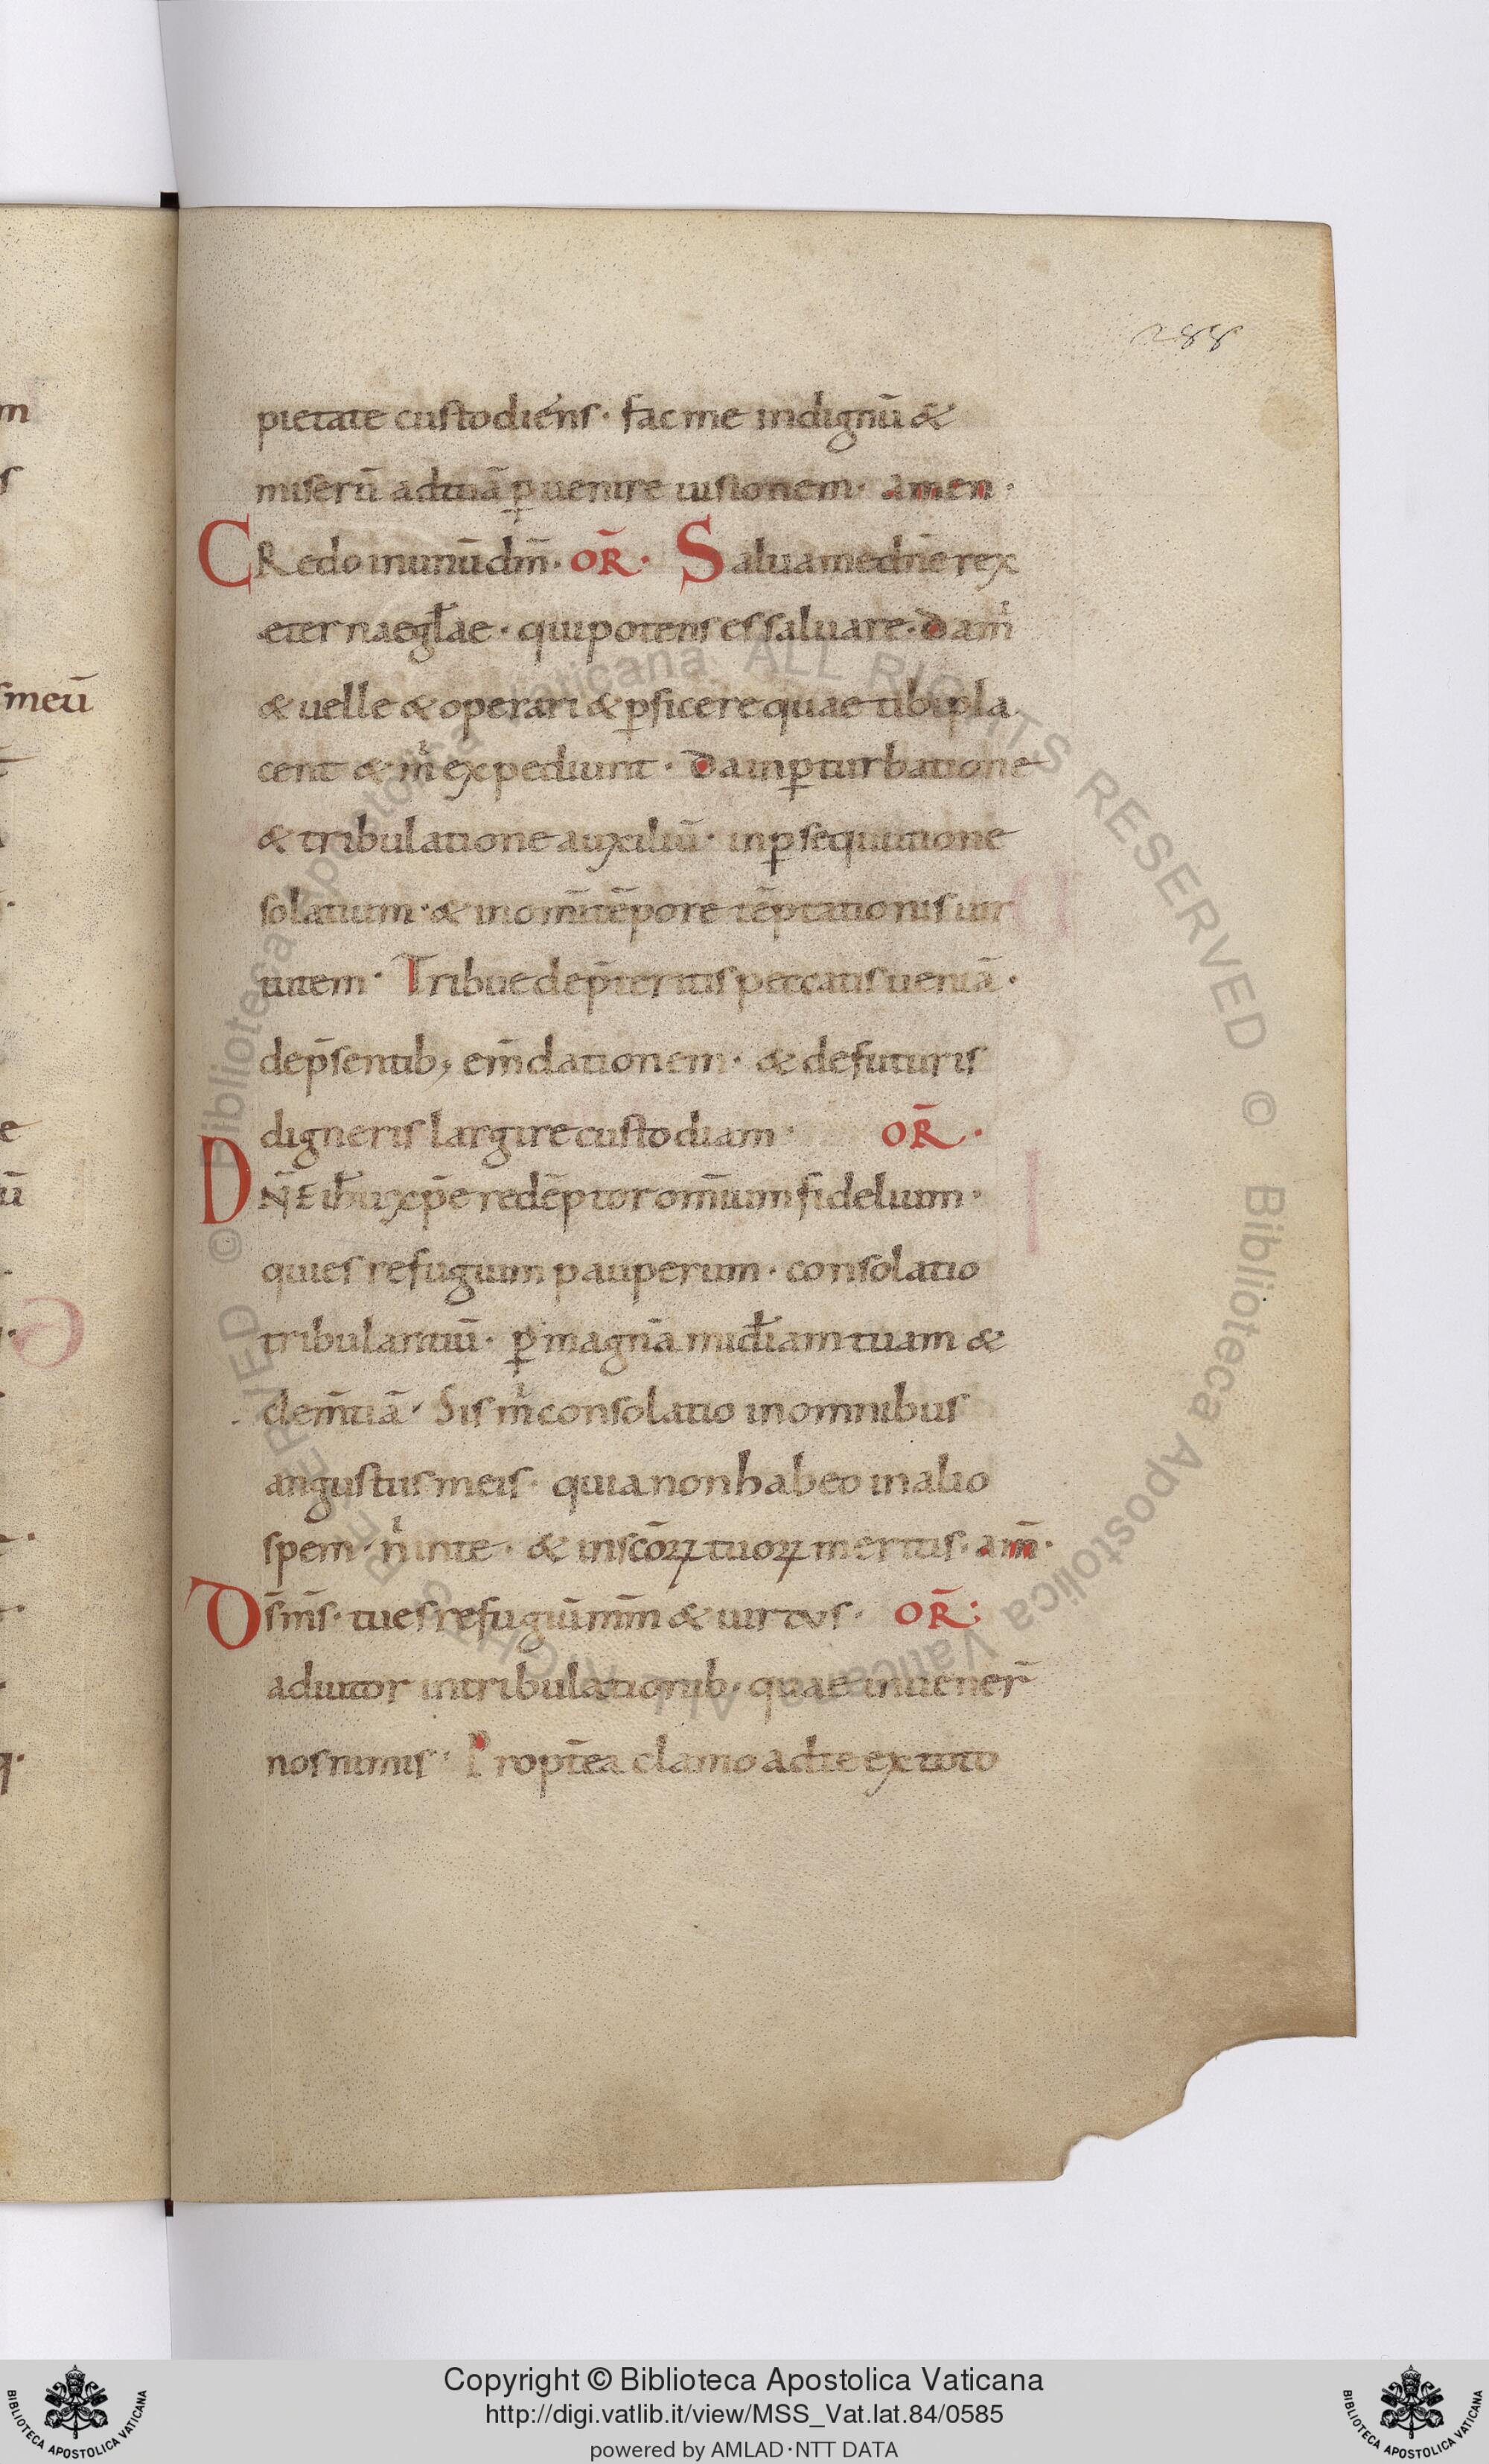 288
pietate custodiens · fac me indignū &
miserū ad tuā ꝑ uenire uisionem · amen ·
CRedo in unū dm̄ · OR̄ · Salua me dn̄e rex
eternae gl̄ae · qui potens es saluare · da mͥ
& uelle & operari & ꝑficere quae tibi pla
cent & mͥ expediunt · da in ꝑturbatione
& tribulatione auxiliū · in ꝑsequutione
solatium · & in om̄i tēpore tēptationis uir
tutem · Tribue de p̄teritis peccatis ueniā ·
de p̄sentib; em̄dationem · & de futuris
digneris largire custodiam · OR̄ ·
DN̄E ihu xp̄e redēptor omīum fidelium ·
quies refugium pauperum · consolatio
tribulantiū · ꝑ magnā mīdiam tuam &
clem̄tiā · Sis mͥ consolatio in omnibus
angustiis meis · quia non habeo in alio
spem · nͥ in te · & in sc̄oꝝ tuoꝝ meritis · am̄ ·
Ds̄ ms̄ · tu es refugiū mm̄ & uirtus · OR̄ :
adiutor in tribulationib; quae inuener̄
nos nimis · Propt̄ea clamo ad te ex toto
m
s
smeū
e
ū
Copyright © Biblioteca Apostolica Vaticana
http://digi.vatlib.it/view/MSS_Vat.lat.84/0585
powered by AMLAD·NTT DATA
BIBLIOTECA APOSTOLICA VATICANA
BIBLIOTECA APOSTOLICA VATICANA
© Biblioteca Apostolica Vaticana ALL RIGHTS RESERVED © Biblioteca Apostolica Vaticana ALL RIGHTS RESERVED